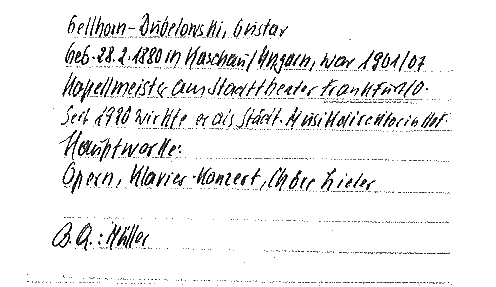 Gellhorn-Dubelowski, Gustav
Geb. 28.2.1880 in Kaschau/Ungarn, war 1901/07
Kapellmeister am Stadttheater Frankfurt/O.
Seit 1990 wirkte er als Städt. Musikdirektor in
Hauptwerke:
Opern, Klavier-Konzert, Chöre Lieder
B.A.: Müller